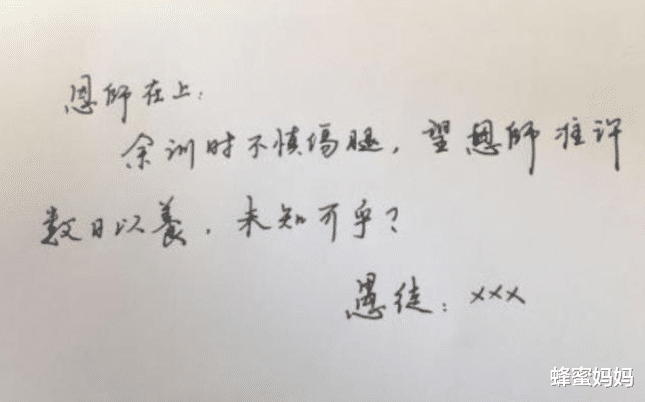 恩师在上：
余训时不慎伤腿，望恩师准许
数日以養，未知可乎？
愚徒：xxx
蜂蜜妈妈